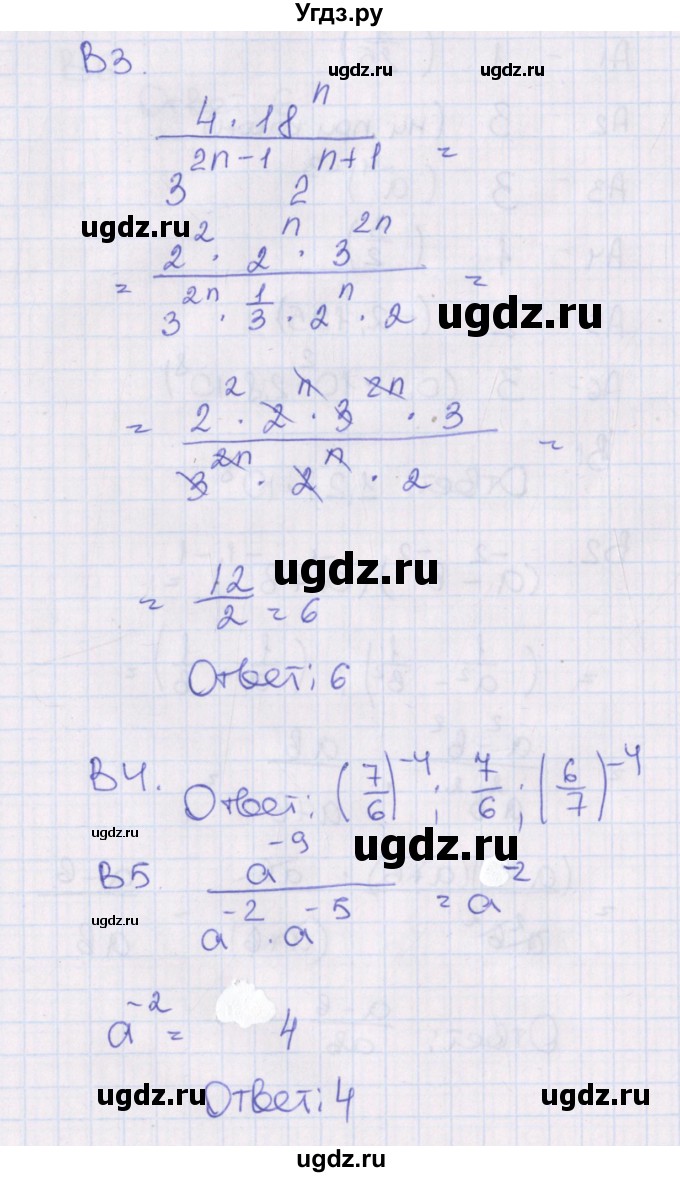 Угдз.ру
В3.
ugdz.ru ugdz.ru
4 · 18^n / 3^(2n-1) 2^(n+1) =
ugdz.ru
= 2^2 · 2^n · 3^(2n) / 3^(2n) · 1/3 · 2^n · 2 =
ugdz.ru
= 2^2 · 2^n · 3^(2n) · 3 / 3^(2n) · 2^n · 2 =
ugdz.ru
= 12/2 = 6
Ответ: 6
В4. Ответ: (7/6)^(-4); 7/6; (6/7)^(-4)
ugdz.ru
В5 a^(-9) / a^(-2) · a^(-5) = a^(-2)
ugdz.ru
a^(-2) = 4
ugdz.ru ugdz.ru ugdz.ru
Ответ: 4
ugdz.ru